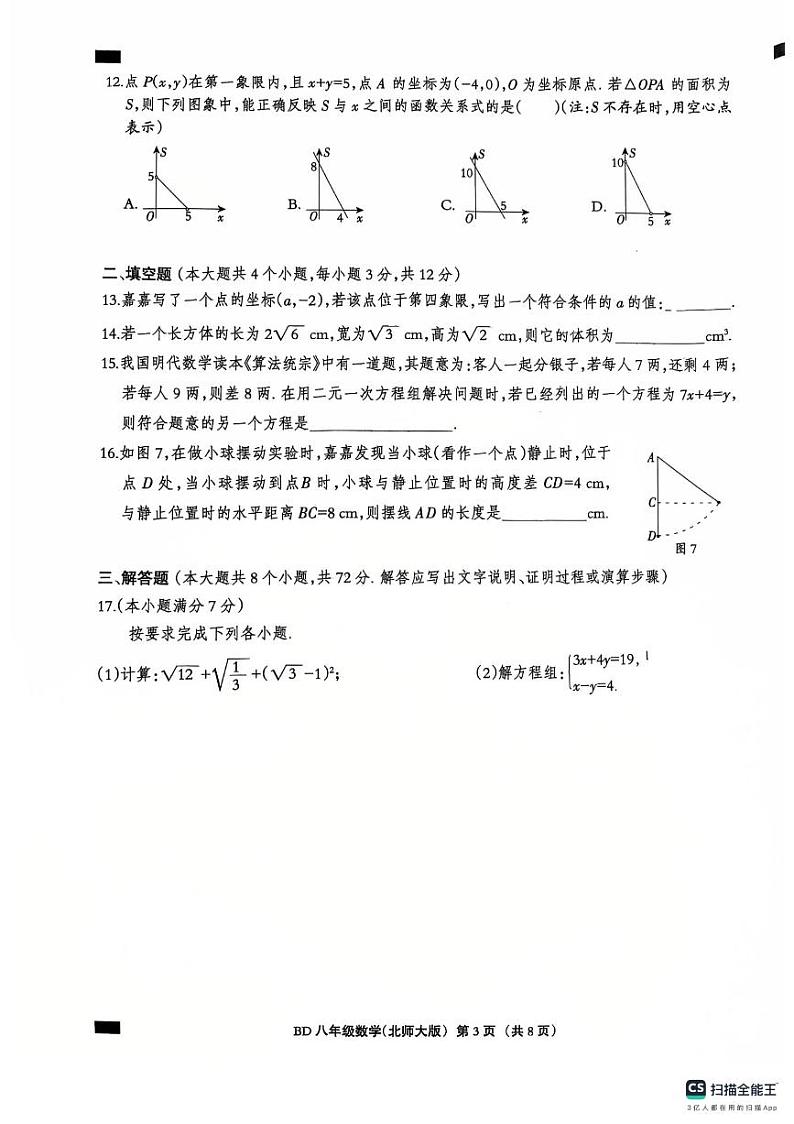 12.点 P(x,y)在第一象限内,且 x+y=5,点 A 的坐标为(-4,0),O 为坐标原点. 若△OPA 的面积为
S,则下列图象中,能正确反映 S 与 x 之间的函数关系式的是(    )(注:S 不存在时,用空心点
表示)
A. S 5 O 5 x
B. S 8 O 4 x
C. S 10 O 5 x
D. S 10 O 5 x
二、填空题 (本大题共 4 个小题,每小题 3 分,共 12 分)
13.嘉嘉写了一个点的坐标(a,-2),若该点位于第四象限,写出一个符合条件的 a 的值:_________.
14.若一个长方体的长为 2√6 cm,宽为√3 cm,高为√2 cm,则它的体积为___________cm³.
15.我国明代数学读本《算法统宗》中有一道题,其题意为:客人一起分银子,若每人 7 两,还剩 4 两;
若每人 9 两,则差 8 两. 在用二元一次方程组解决问题时,若已经列出的一个方程为 7x+4=y,
则符合题意的另一个方程是__________________.
16.如图 7,在做小球摆动实验时,嘉嘉发现当小球(看作一个点)静止时,位于
点 D 处,当小球摆动到点B 时,小球与静止位置时的高度差 CD=4 cm,
与静止位置时的水平距离 BC=8 cm,则摆线 AD 的长度是___________cm.
A
C
D
图 7
三、解答题 (本大题共 8 个小题,共 72 分. 解答应写出文字说明、证明过程或演算步骤)
17.(本小题满分 7 分)
按要求完成下列各小题.
(1)计算:√12+√(1/3)+(√3-1)²;
(2)解方程组:{3x+4y=19,
x-y=4.
BD 八年级数学(北师大版) 第 3 页 (共 8 页)
CS 扫描全能王
3亿人都在用的扫描App